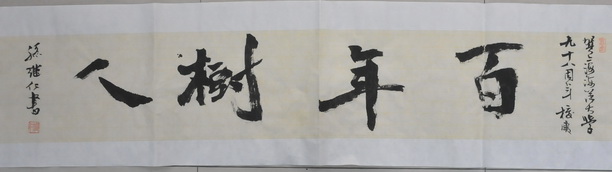 贺上海海洋大學
九十八周年校慶
百年樹人
孫继仁書